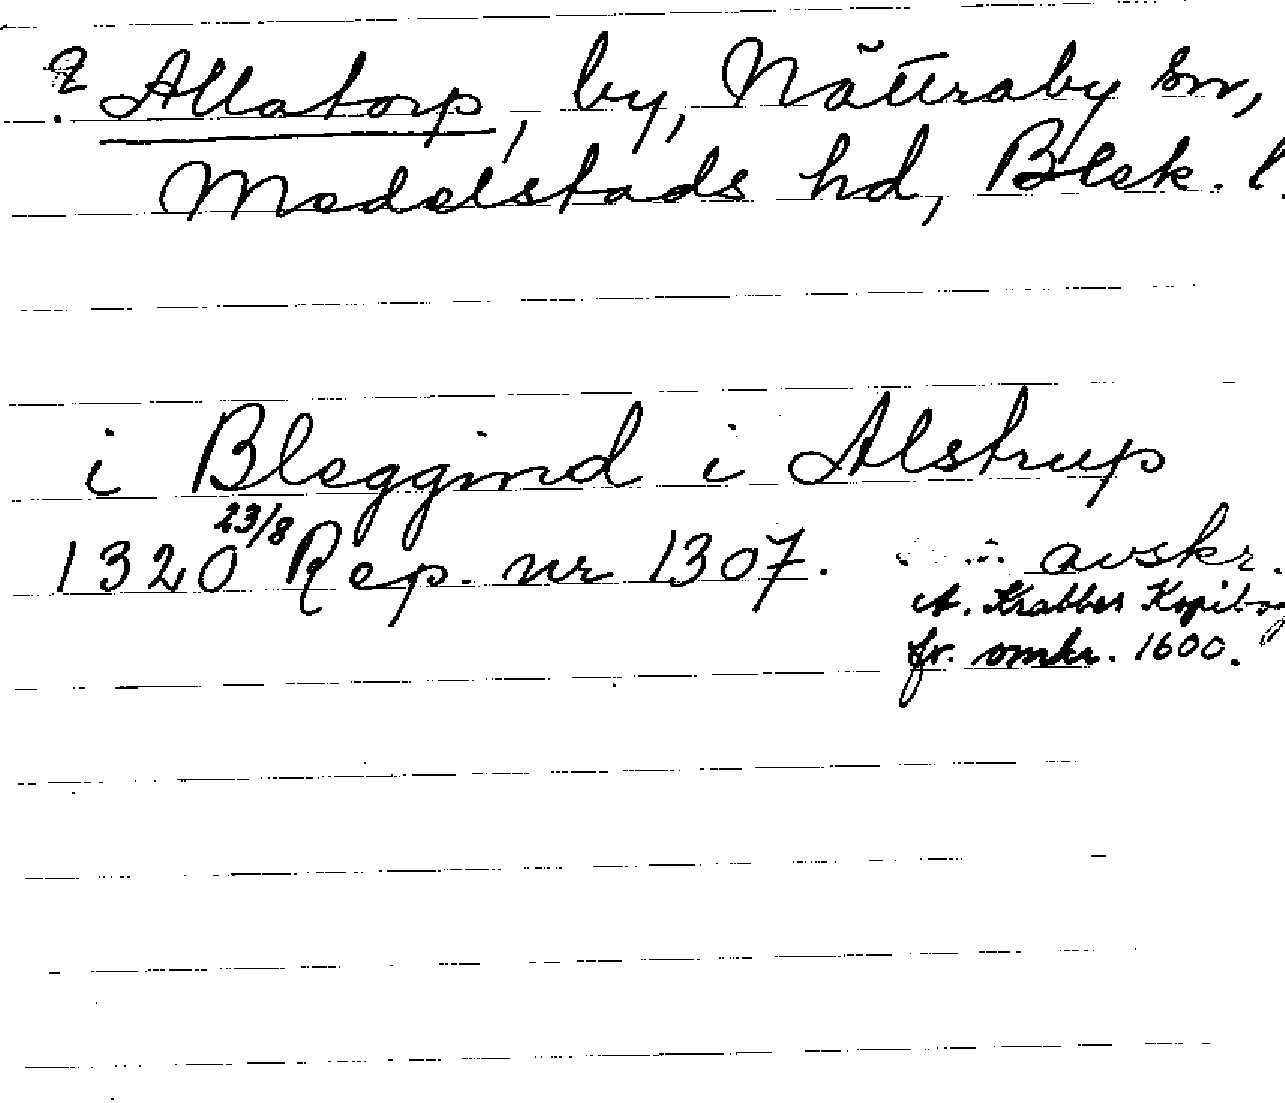 ? Allatorp, by, Nättraby sn,
Medelstads hd, Blek. l.
i Bleggind i Alstrup
1320 23/8 Rep. nr 1307. avskr.
A. Krabbes Kopibog
fr. omkr. 1600.